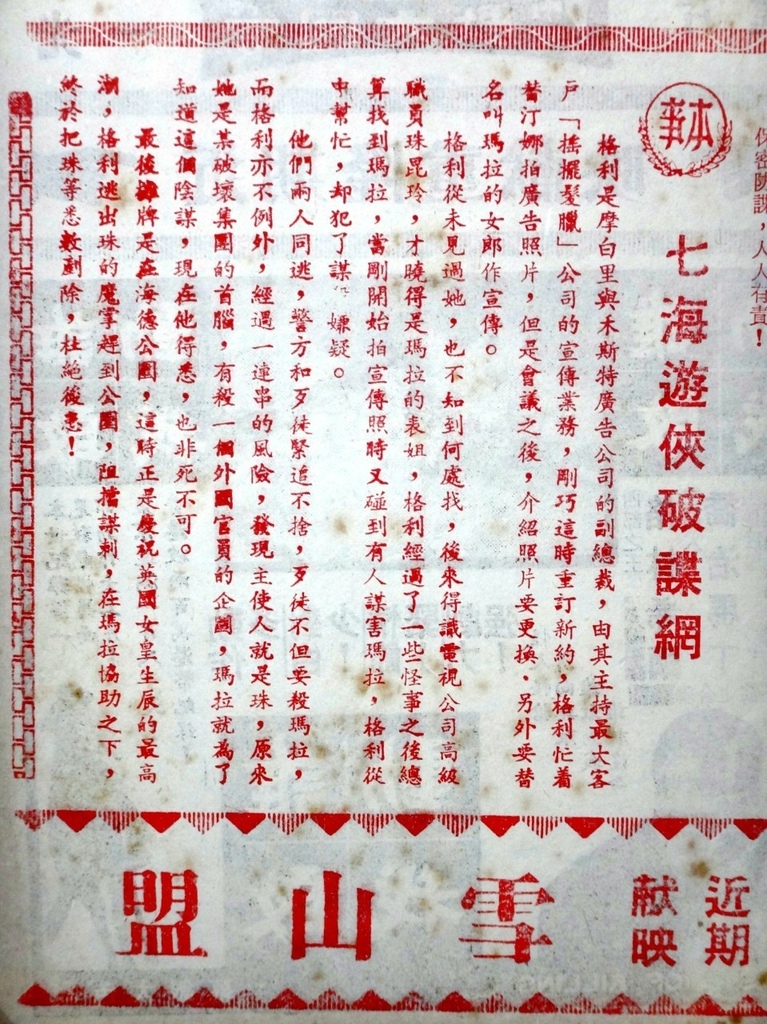 保密防諜，人人有責！
本事
七海遊俠破諜網
格利是摩白里與木斯特廣告公司的副總裁，由其主持最大客
戶「搖擺髮臘」公司的宣傳業務，剛巧這時重訂新約，格利忙着
替汀娜拍廣告照片，但是會議之後，介紹照片要更換．另外要替
名叫瑪拉的女郎作宣傳。
格利從未見過她，也不知到何處找，後來得識電視公司高級
職員珠昆玲，才曉得是瑪拉的表姐，格利經過了一些怪事之後總
算找到瑪拉，當剛開始拍宣傳照時又碰到有人謀害瑪拉，格利從
中幫忙，却犯了謀 嫌疑。
他們兩人同逃，警方和歹徒緊追不捨，歹徒不但要殺瑪拉，
而格利亦不例外，經過一連串的風險，發現主使人就是珠，原來
她是某破壞集團的首腦，有殺一個外國官員的企圖，瑪拉就為了
知道這個陰謀，現在他得悉，也非死不可。
最後攤牌是在海德公園，這時正是慶祝英國女皇生辰的最高
潮，格利逃出珠的魔掌趕到公園，阻擋謀刺，在瑪拉協助之下，
終於把珠等悉數剷除，杜絕後患！
近期
献映
雪山盟